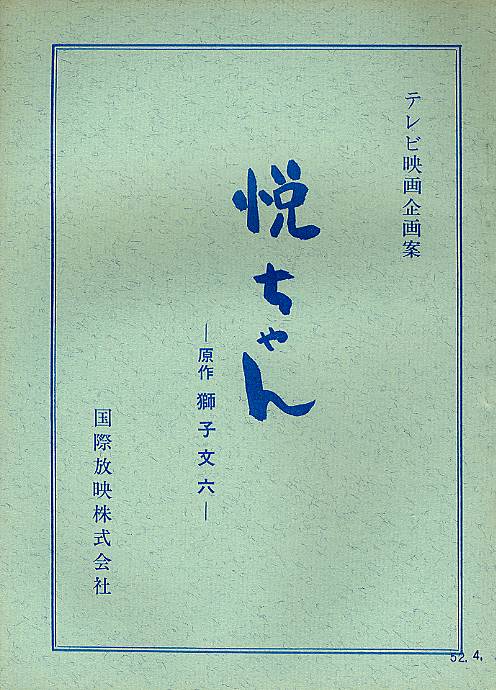 テレビ映画企画案
悦ちゃん
―原作 獅子文六―
国際放映株式会社
52. 4.